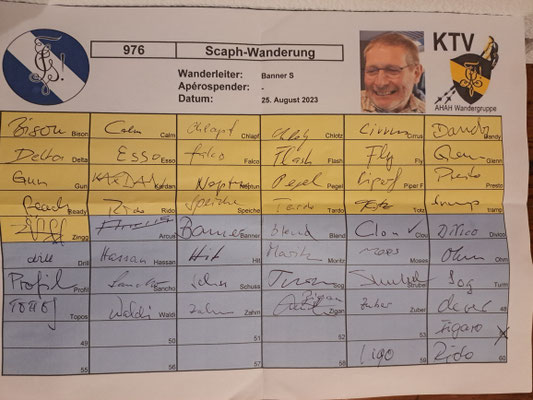 976 Scaph-Wanderung KTV
Wanderleiter: Banner S
Apérospender: -
Datum: 25. August 2023
AHAH Wandergruppe
Bison Bison Calm Calm Chlapf Chlapf Chlotz Cirrus Cirrus Dandy Dandy
Delta Delta Esso Esso Falco Falco Flash Flash Fly Fly Glen
Gun Gun KARDAN Kardan Neptun Neptun Pegel Pegel Piper F Piper F Presto Presto
Ready Ready Rido Rido Speiche Speiche Tardo Tardo Totz Tramp
Zingg Arcus Banner Banner Blend Blend Clou Clou Divico Divico
drill Drill Hassan Hassan Hit Hit Moritz Moritz Moses Moses Ohm Ohm
Profil Profil Sancho Sancho Schuss Sog Strubel Strubel Sog Turm
TOPOS Topos Waldi Waldi Zahm Zahm Zigan Zigan Zuber Zuber 48
49 50 51 52 53 Figaro
55 56 57 58 Ligo Zido 60